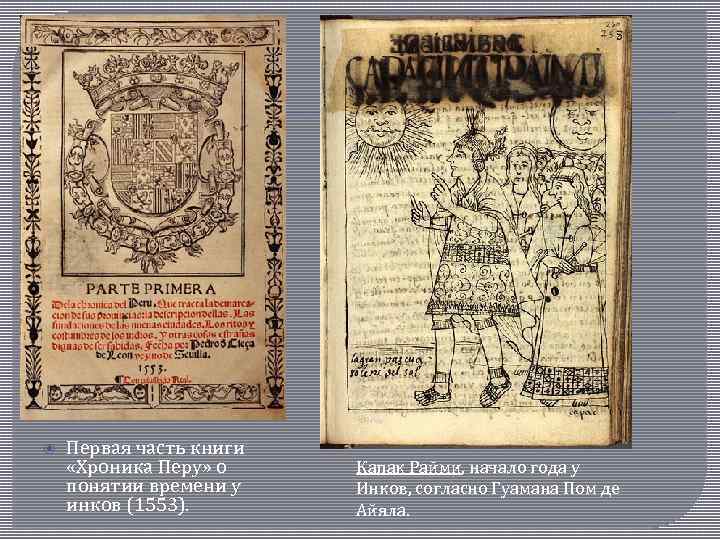 PARTE PRIMERA
Dela chronica del Peru. Que tracta la demarca-
cion de sus prouincias: la descripcion dellas. Las
fundaciones de las nueuas ciudades. Los ritos y
costumbres de los indios. Y otras cosas estrañas
dignas de ser sabidas. Fecha por Pedro d Cieça
de Leon vezino de Seuilla.
1553.
Con preuillegio Real.
258
CAPAC INTI RAIMI
la gran pascua
solene del sol
Первая часть книги
«Хроника Перу» о
понятии времени у
инков (1553).
Капак Райми, начало года у
Инков, согласно Гуамана Пом де
Айяла.